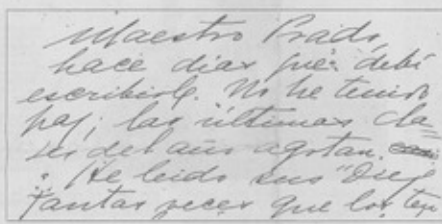 Maestro Prado,
hace dias que debí
escribirle. No he tenido
paz; las últimas cla
ses del año agotan.
He leido sus "Diez
tantas veces que los ten